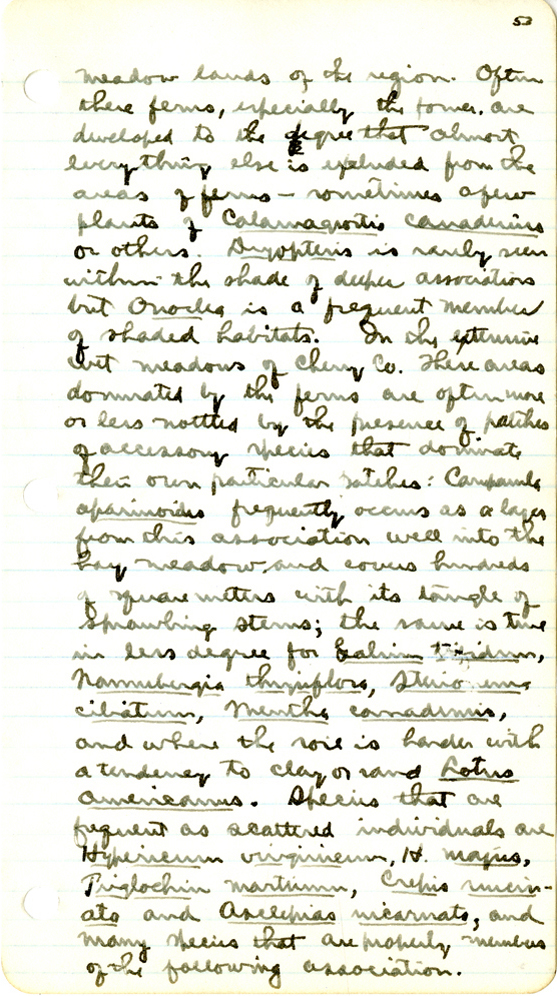 53
meadow lands of the region. Often
these ferns, especially the former, are
developed to the degree that almost
everything else is excluded from the
areas of ferns — sometimes a few
plants of Calamagrostis canadensis
or others. Dryopteris is rarely seen
within the shade of deeper associations
but Onoclea is a frequent member
of shaded habitats. In the extensive
wet meadows of Cherry Co. these areas
dominated by the ferns are often more
or less mottled by the presence of patches
of accessory species that dominate
their own particular patches: Campanula
aparinoides frequently occurs as a layer
from this association well into the
hay meadow and covers hundreds
of square meters with its tangle of
sprawling stems; the same is true
in less degree for Galium trifidum,
Naumubergia thyrsiflora, Steironema
ciliatum, Mentha canadensis,
and where the soil is harder with
a tendency to clay or sand Lotus
americanus. Species that are
frequent as scattered individuals are
Hypericum virginicum, H. majus,
Triglochin maritimum, Crepis runcin-
ata and Asclepias incarnata, and
many species that are properly members
of the following association.